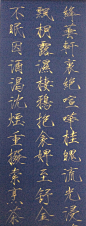 絳雲軒裏絕喧嘩桂魄流光浸
飄桐露濕棲鴉抱衾婢至舒金
不眠因酒渴沉煙重撥索烹茶